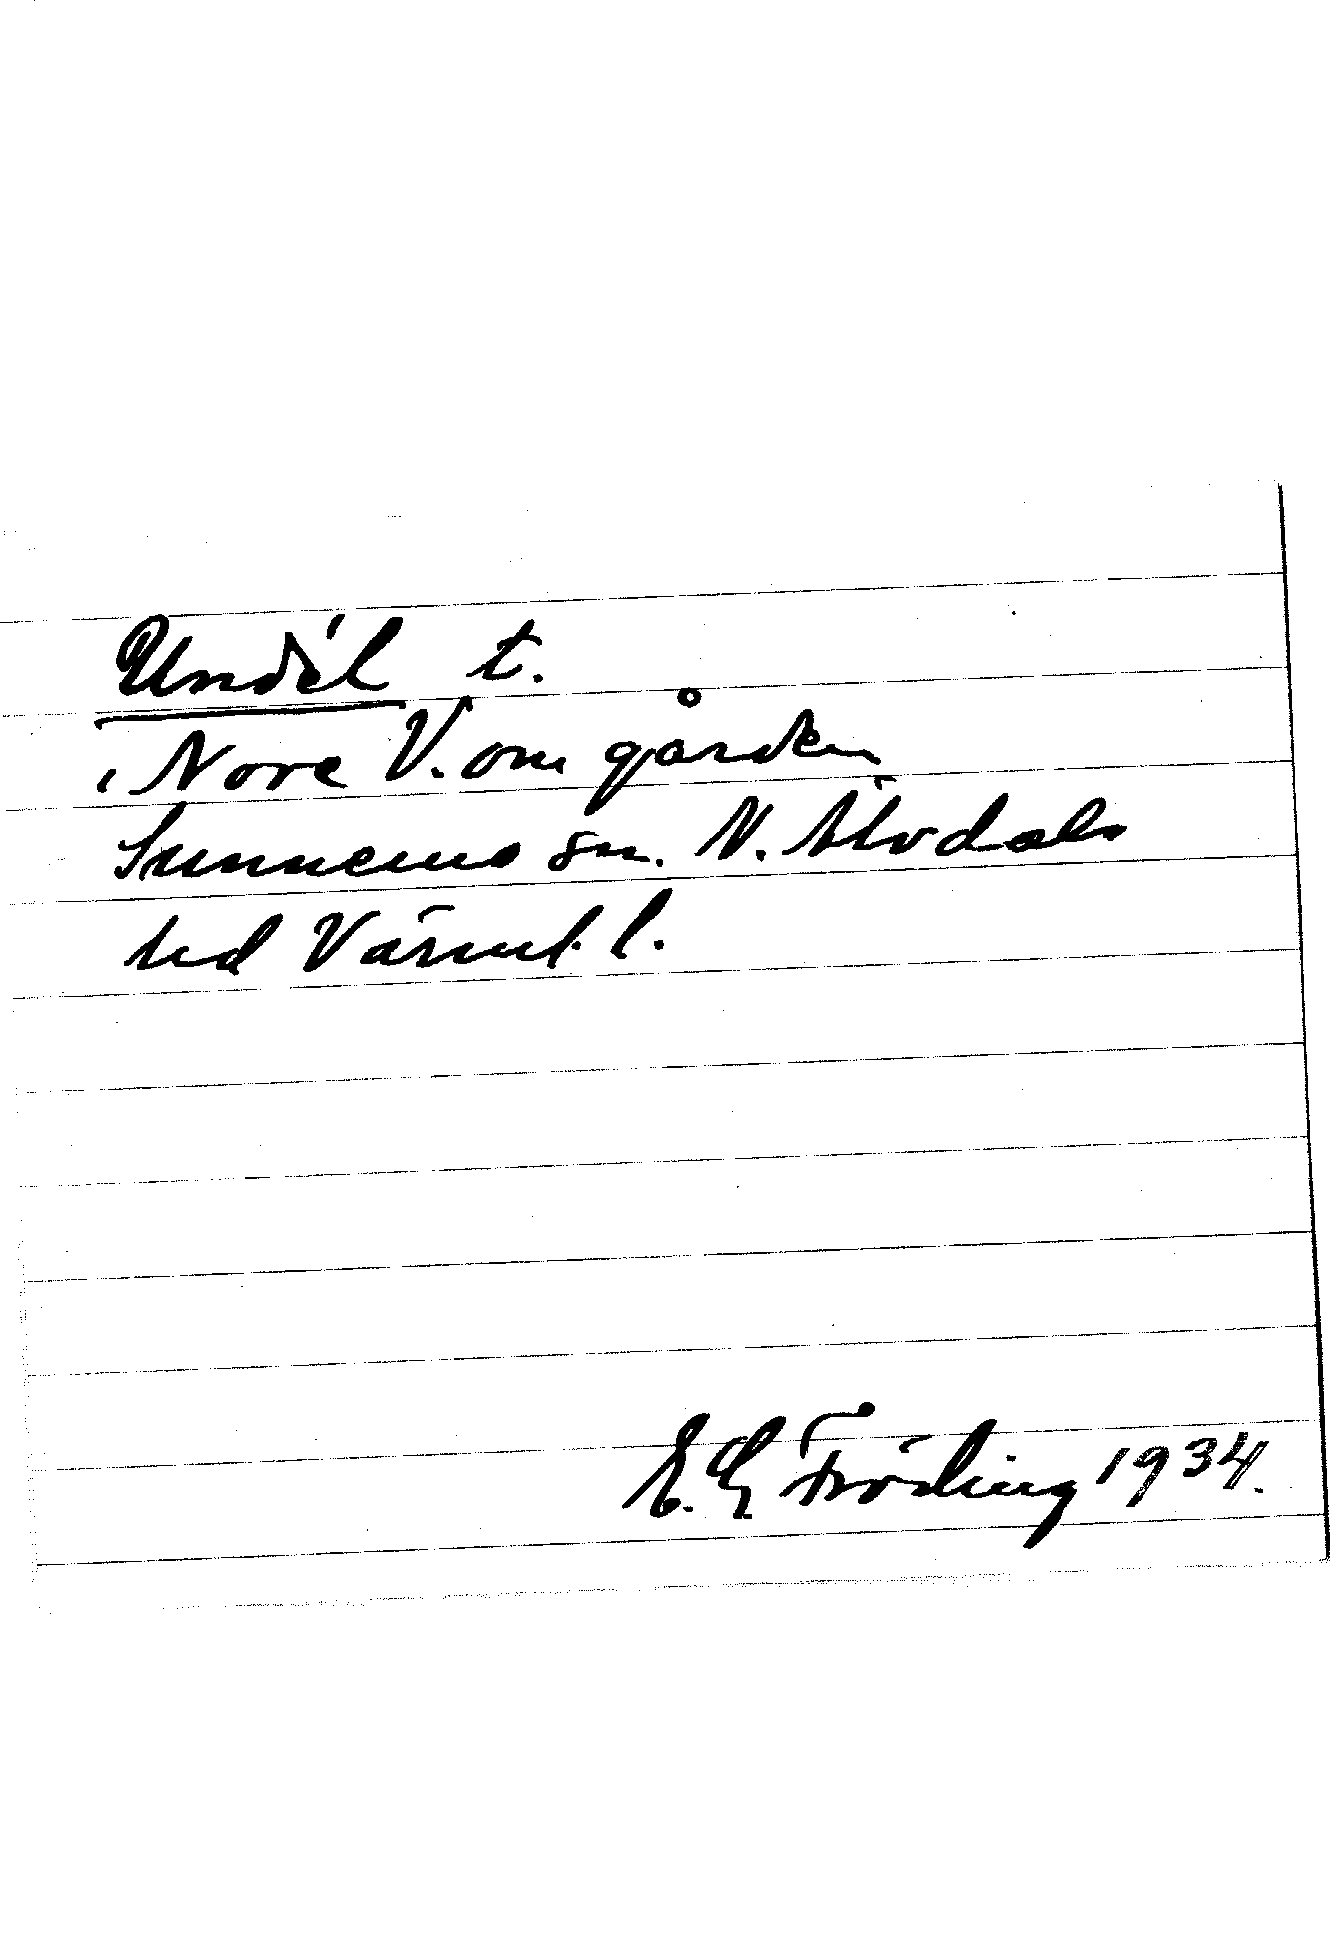 Undél t.
i Nore V. om gården
Sunnemo sn. N. Älvdals
hd Värml. l.
E. G Fröding 1934.